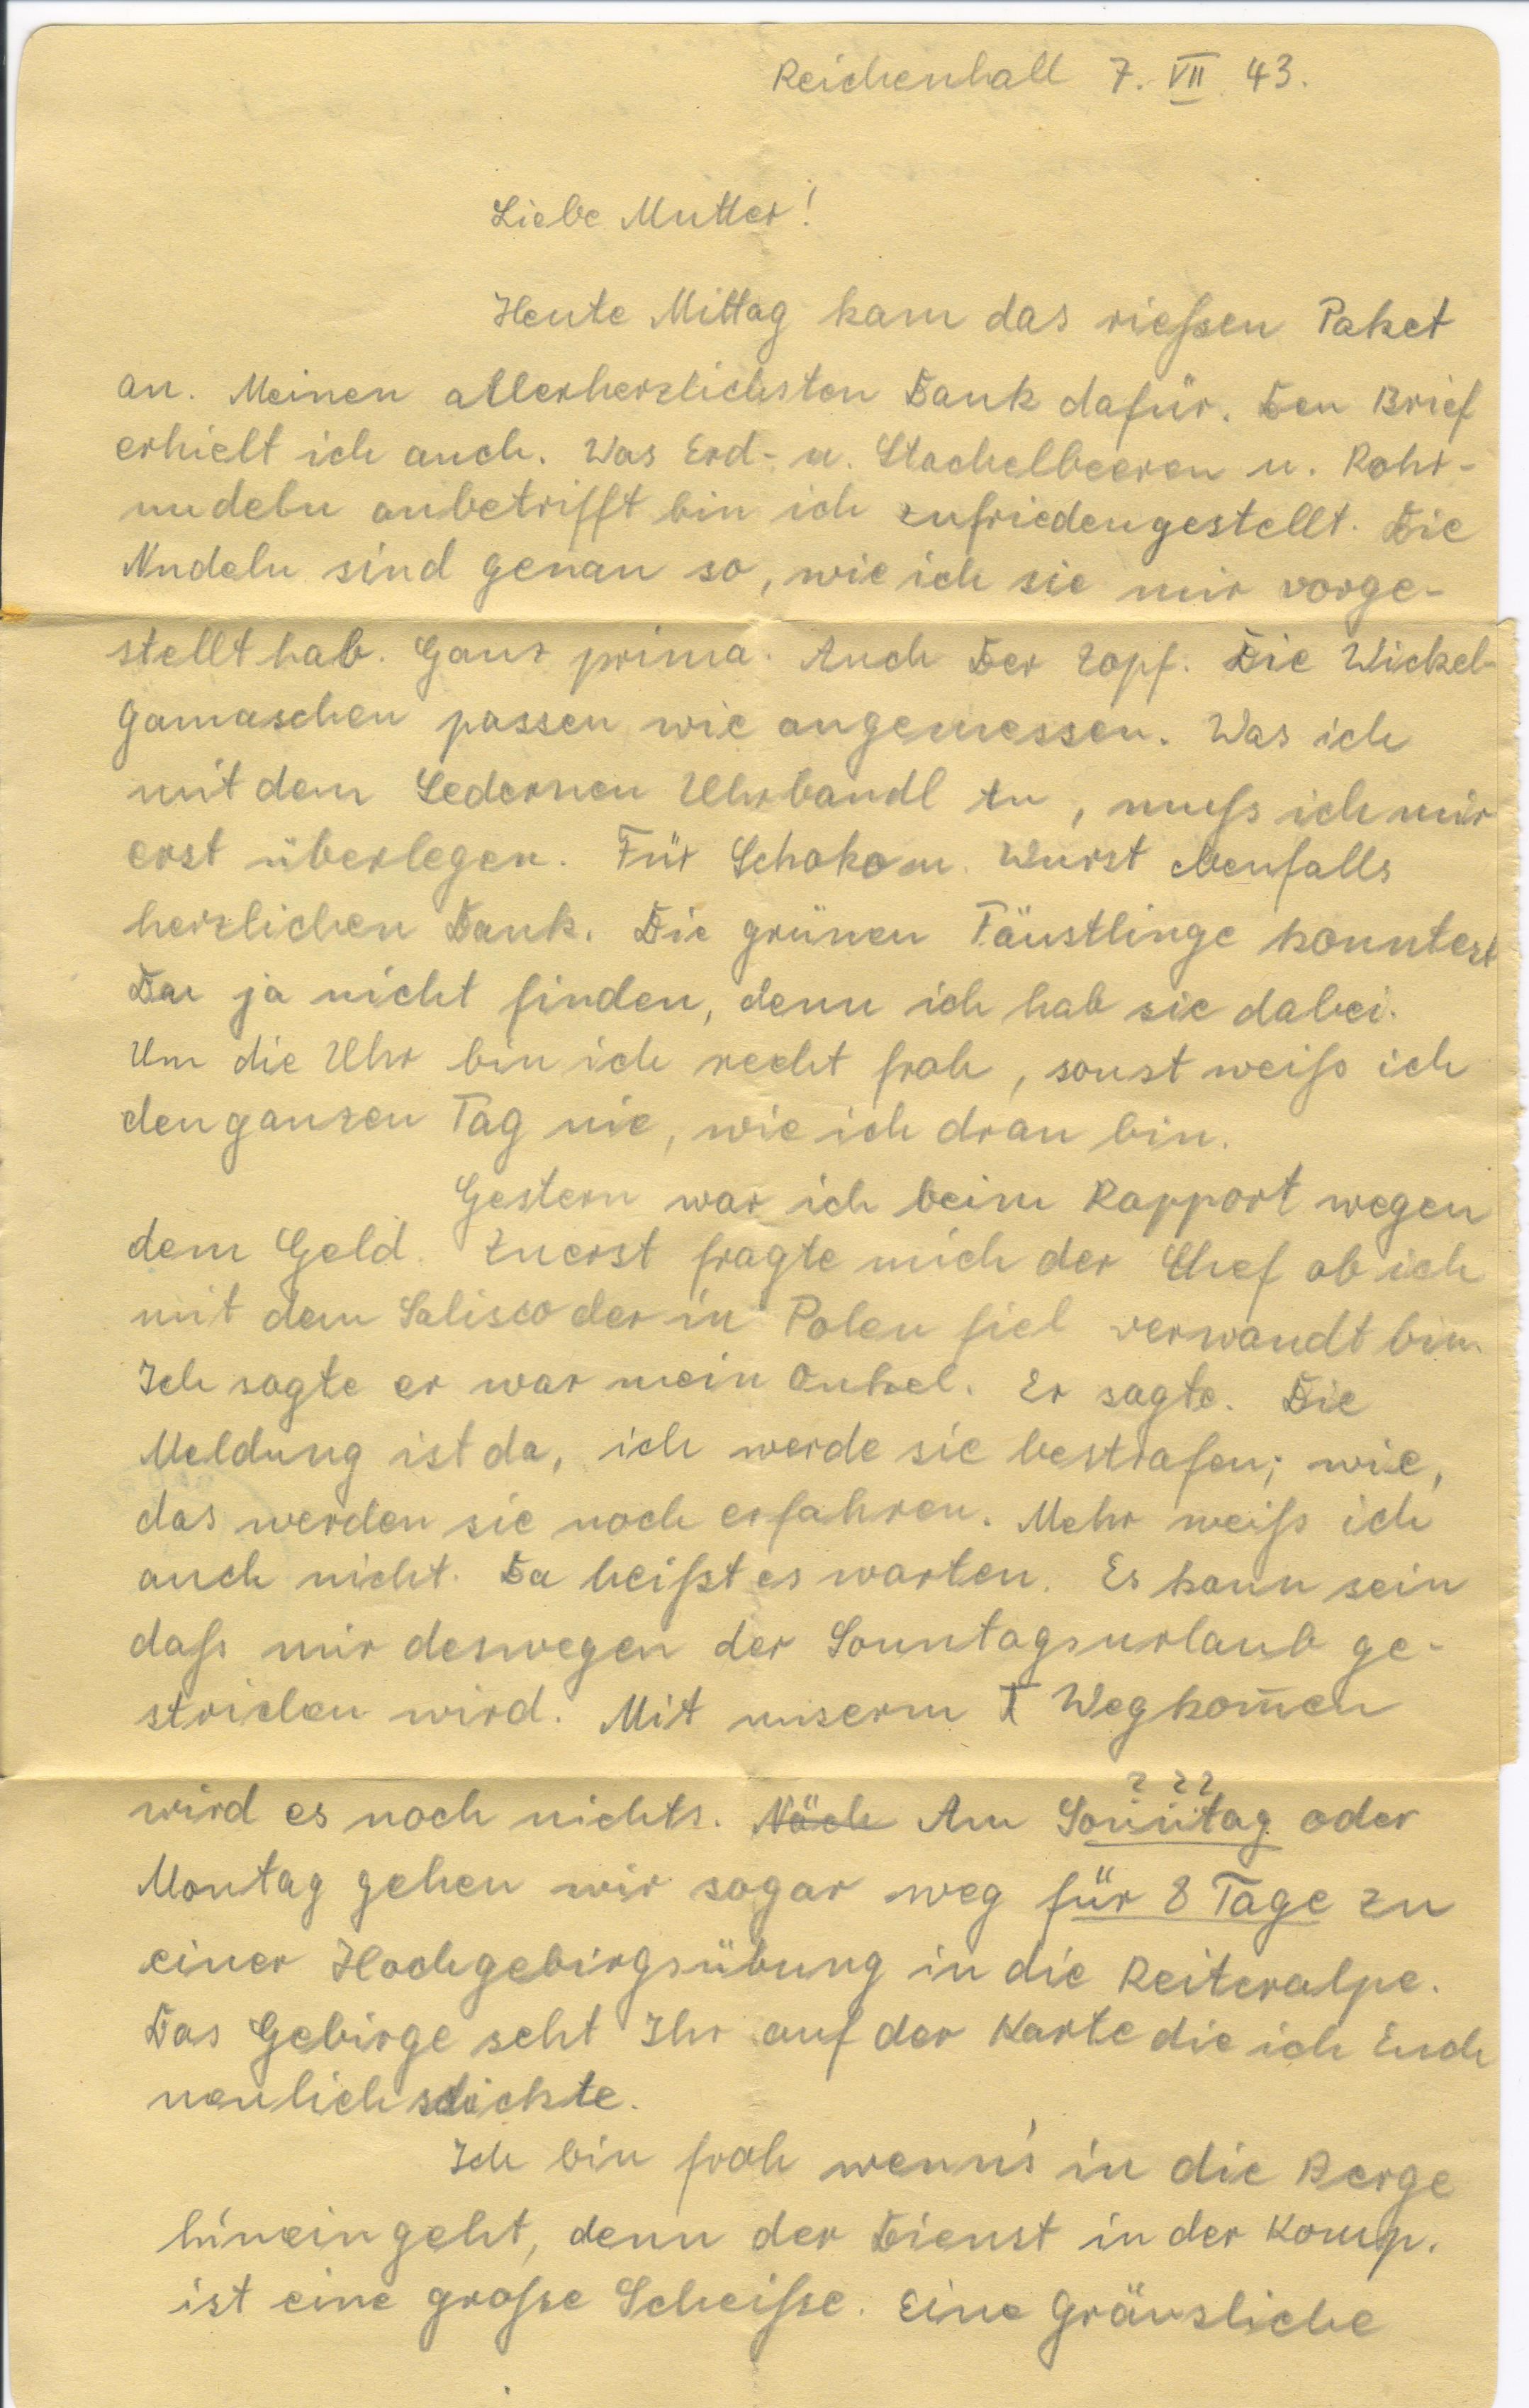 Reichenhall 7. VII 43.
Liebe Mutter!
Heute Mittag kam das rießen Paket
an. Meinen allerherzlichsten Dank dafür. Den Brief
erhielt ich auch. Was Erd- u. Stachelbeeren u. Rohr-
nudeln anbetrifft bin ich zufriedengestellt. Die
Nudeln sind genau so, wie ich sie mir vorge-
stellt hab. Ganz prima. Auch Der Zopf. Die Wickel-
gamaschen passen wie angemessen. Was ich
mit dem Ledernen Uhrbandl tu, muß ich mir
erst überlegen. Für Schoko u. Wurst ebenfalls
herzlichen Dank. Die grünen Fäustlinge konntest
Du ja nicht finden, denn ich hab sie dabei.
Um die Uhr bin ich recht froh, sonst weiß ich
den ganzen Tag nie, wie ich dran bin.
Gestern war ich beim Rapport wegen
dem Geld. Zuerst fragte mich der Chef ob ich
mit dem Salisco der in Polen fiel verwandt bin.
Ich sagte er war mein Onkel. Er sagte. Die
Meldung ist da, ich werde sie bestrafen; wie,
das werden sie noch erfahren. Mehr weiß ich
auch nicht. Da heißt es warten. Es kann sein
daß mir deswegen der Sonntagsurlaub ge-
strichen wird. Mit unserm Wegkom̄en
wird es noch nichts. Näch Am Sonntag oder
? ??
Montag gehen wir sogar weg für 8 Tage zu
einer Hochgebirgsübung in die Reiteralpe.
Das Gebirge seht Ihr auf der Karte die ich Euch
neulich schickte.
Ich bin froh wenn's in die Berge
hineingeht, denn der Dienst in der Komp.
ist eine große Scheiße. Eine Gräusliche